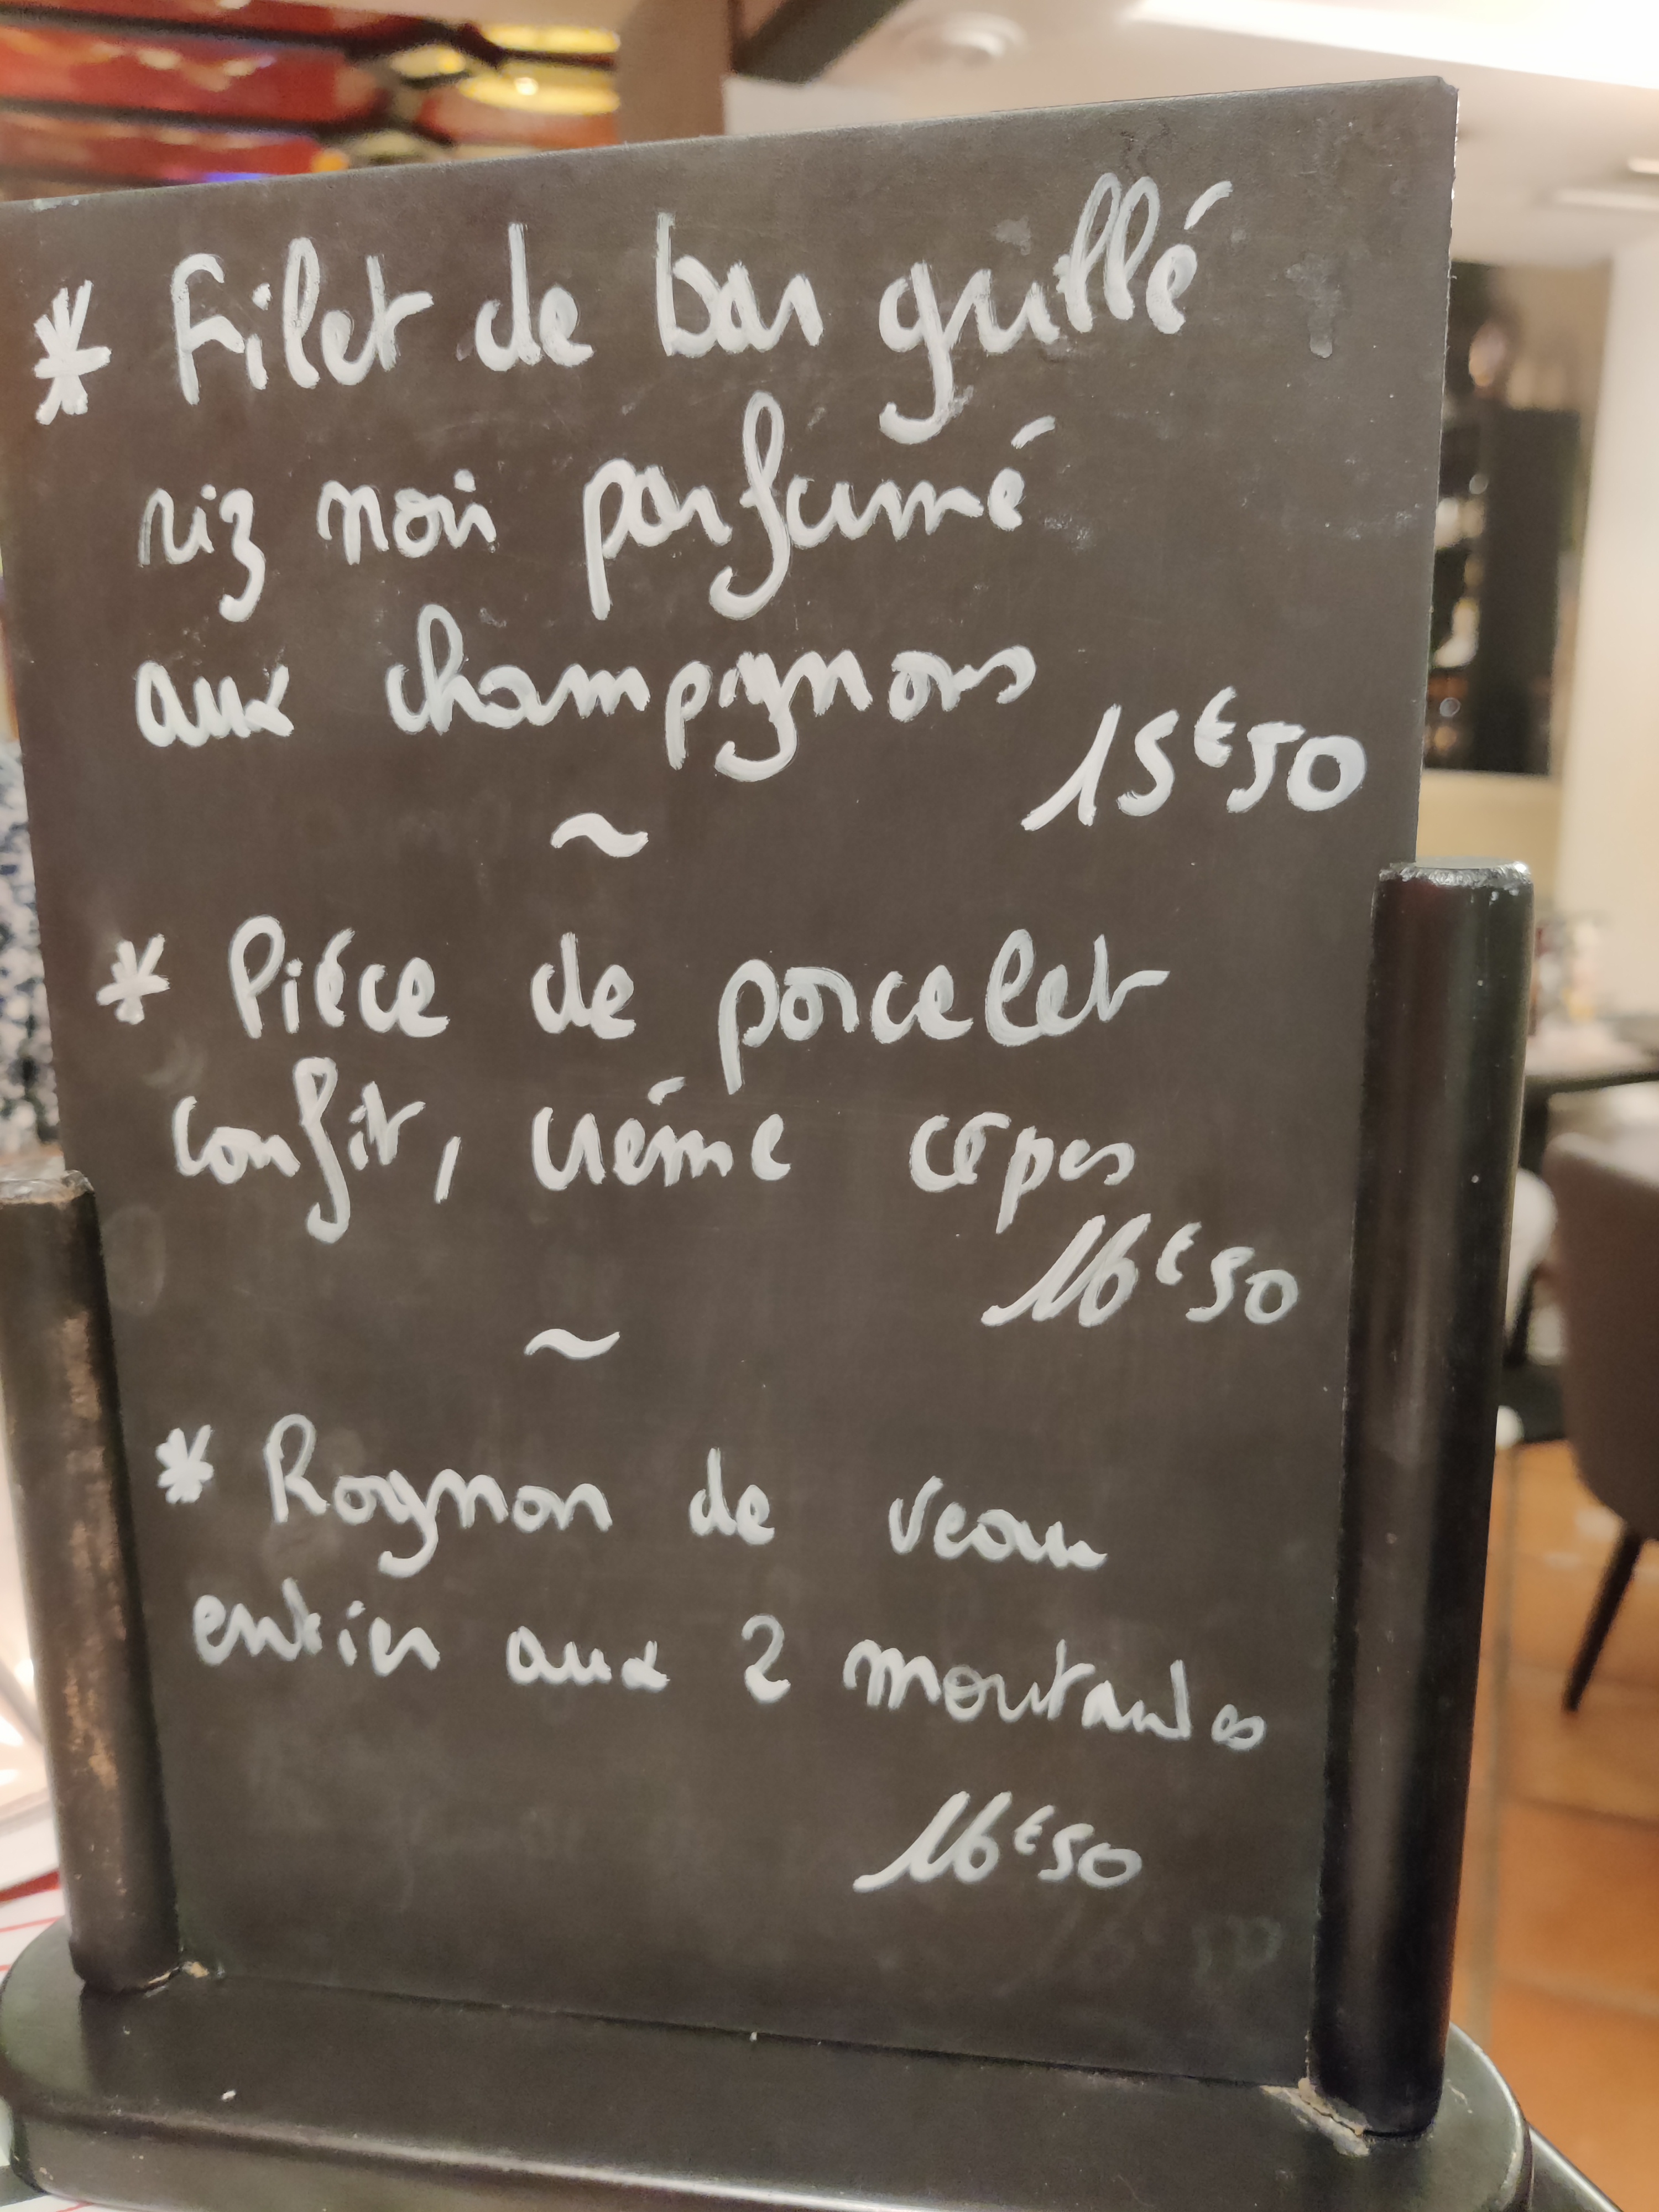 * Filet de bar grillé
riz noir parfumé
aux champignons
15€50
~
* Pièce de porcelet
confit, crème cèpes
16€50
~
* Rognon de veau
entier aux 2 moutardes
16€50